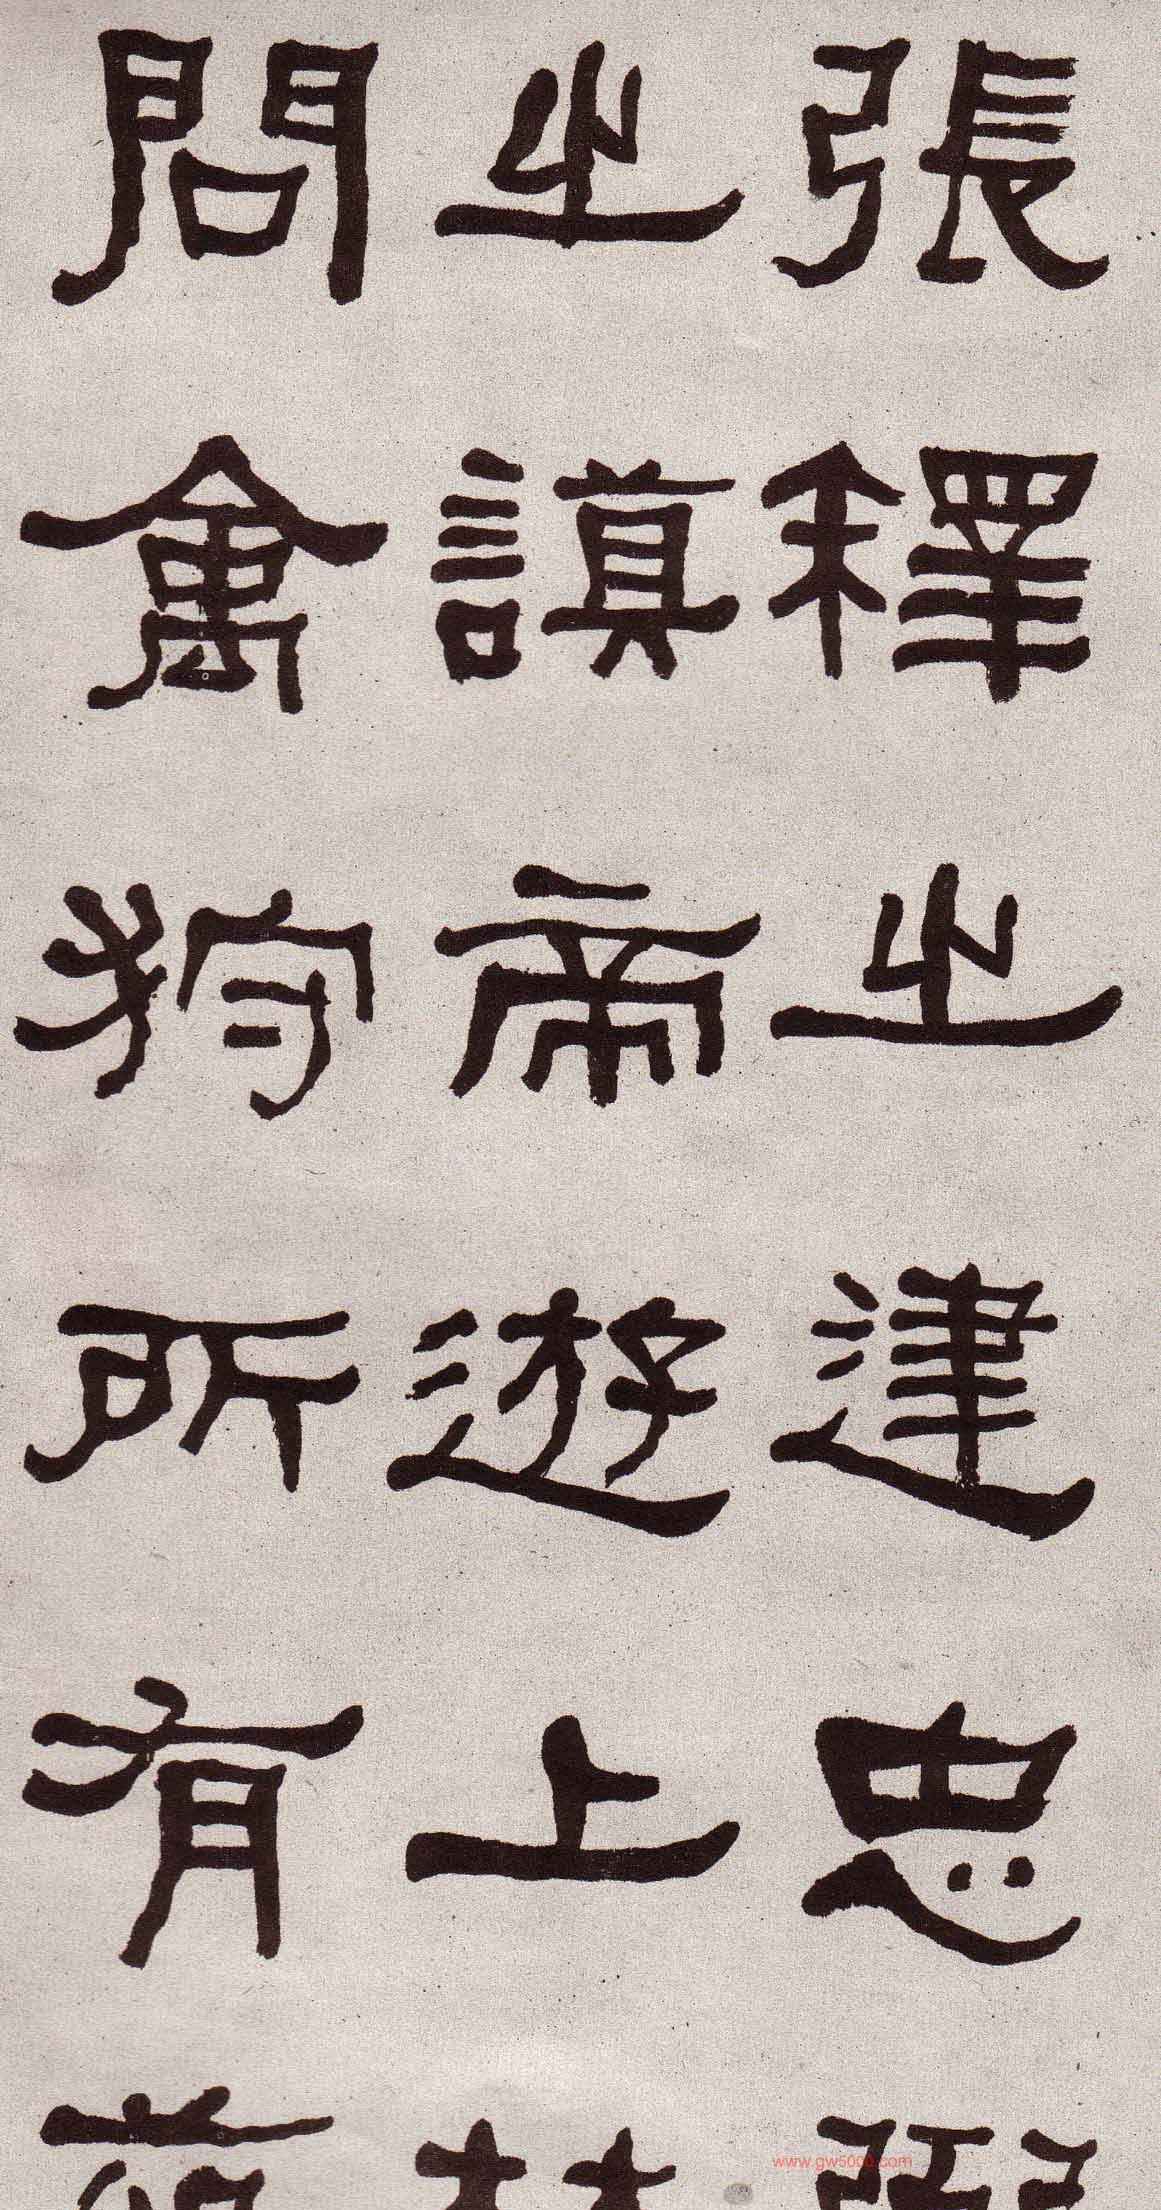 張釋之建忠弼
之謨帝遊上林
問禽狩所有
www.gw5000.com